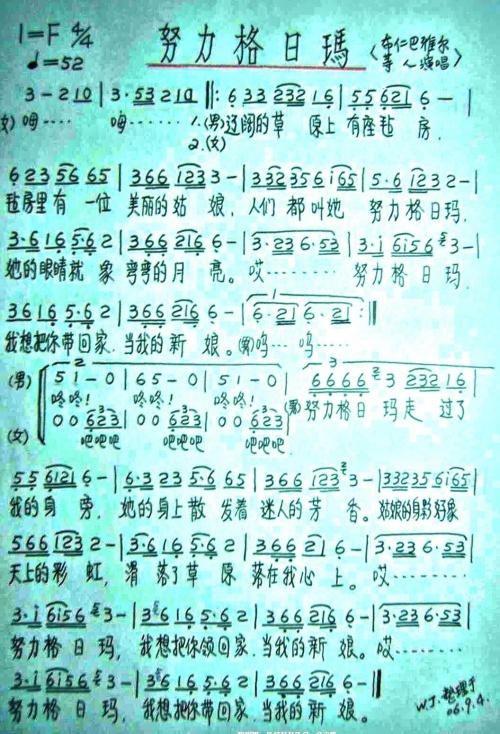 1=F 4/4 努力格日瑪 〈布仁巴雅尔
♩=52 等人演唱〉
3 - 2 1 0 | 3 · 5 3 2 1 0 ‖: 6 3 3 2 3 2 1 6 | 5 5 6 2 1 6 - |
女) 呣····· 呣····· 1.(男)辽阔的草 原上 有座毡 房.
2.(女)
6 2 3 5 6 6 5 | 3 6 6 1 2 3 3 - | 3 3 2 3 5 6 i 6 5 | 5 · 6 1 2 3 2 - |
毡房里有 一位 美丽的姑 娘, 人们 都叫她 努力格日玛.
3 · 6 1 6 5 · 6 2 | 3 6 6 2 1 6 6 - | 3 · 2 3 6 · 5 3 | 3 · i 6 i 5 6 3 - |
她的眼睛就 象 弯弯的月 亮。哎········· 努力格 日 玛.
3 6 1 6 5 · 6 2 | 3 6 6 2 1 6 6 - | 6 · 2 1 6 · 2 1 :‖
我想把你带回家. 当我的新 娘。(男)呜··· 呜·····
(男) 5 i - 0 | 6 5 - 0 | 5 i - 0 | 6 6 6 6 3 2 3 2 1 6 |
咚咚! 咚咚! 咚咚! (男)努力格日 玛走 过了
(女) 0 0 6 2 3 | 0 0 6 2 3 | 0 0 6 2 3
吧吧吧 吧吧吧 吧吧吧
5 5 6 1 2 1 6 - | 6 · 3 2 3 5 · 6 6 5 | 3 6 6 1 2 3 3 - | 3 3 2 3 5 6 i 6 5 |
我的身 旁, 她的身上散 发着 迷人的芳 香。姑娘的身影好象
5 6 6 1 2 3 2 - | 3 · 6 1 6 5 · 6 2 | 3 6 6 2 1 6 - | 3 · 2 3 6 · 5 3 |
天上的彩 虹, 滑 落了草 原 落在我心 上。哎·········
3 · i 6 i 5 6 3 - | 3 6 1 6 5 · 6 2 | 3 6 6 2 1 6 6 - | 3 · 2 3 6 · 5 3 |
努力格 日 玛, 我想把你领回家.当我的新 娘。哎·········
3 · i 6 i 5 6 3 - | 3 6 1 6 5 · 6 2 | 3 6 6 2 1 6 6 - ‖
努力格 日 玛, 我想把你带回家.当我的新 娘。
W.J.整理于
06.9.4.